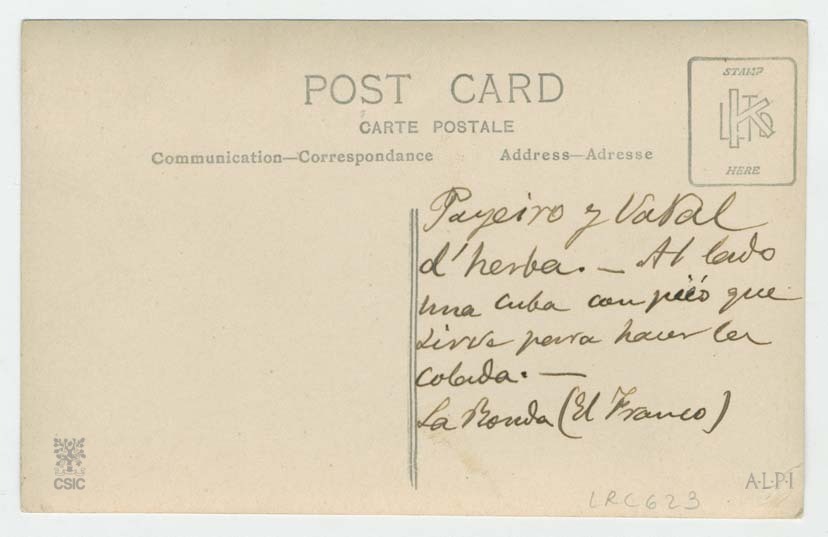 POST CARD
CARTE POSTALE
Communication—Correspondance Address—Adresse
STAMP
HERE
Payeiro y
d'herba. — Al lado
una cuba con que
sirve para hacer la
colada. —
La Ronda (El Franco)
CSIC
A·L·P·I
LRC623